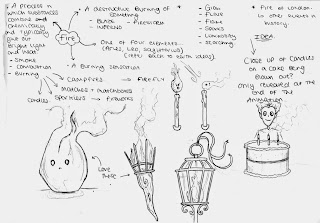 A process in
which substances
combine and
chemically
and typically
give out
Bright light
and heat.
- Smoke
- Combustion
- Burning
Fire
A destructive Burning of
something
- Black - Firescrew
- Inferno
One of four elements
(Aries, Leo, Sagittarius)
(refer back to earth ideas)
- A Burning sensation
Campfires → Firefly
Matches + matchboxes
Candles Sparklers → Fireworks
- Glow
- Flame
- Flare
- Sparks
- Luminosity
- Scorching
Fire of London
is other events in
history.
IDEA
Close up of Candles
on a cake being
Blown out?
Only revealed at the
end of the
Animation
Love
These